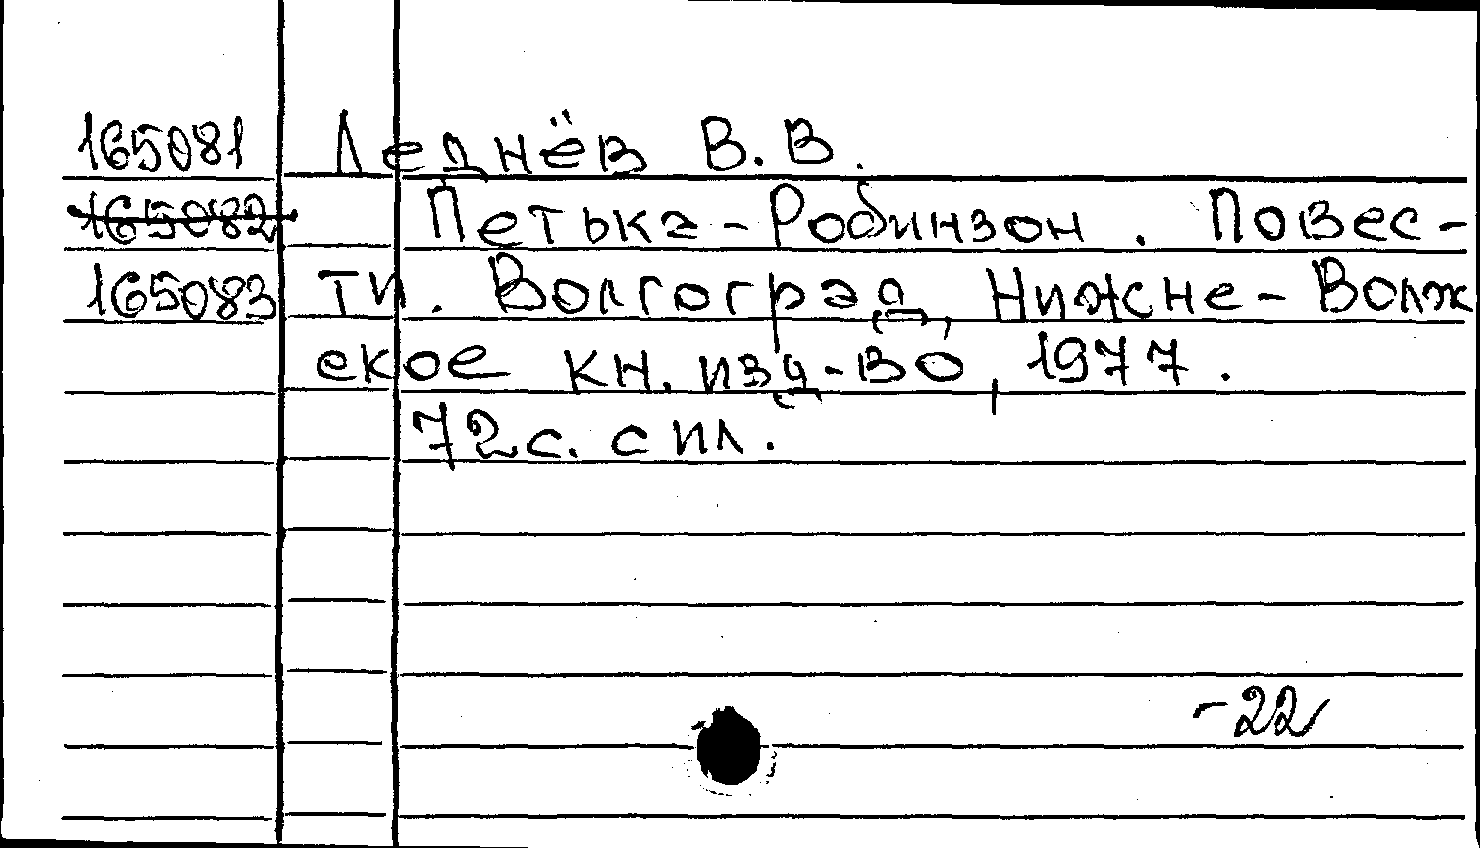 165081 Леднёв В.В.
165082 Петька-Робинзон. Повес-
165083 ти. Волгоград, Нижне-Волж
ское кн. изд-во, 1977.
72с. с ил.
-22